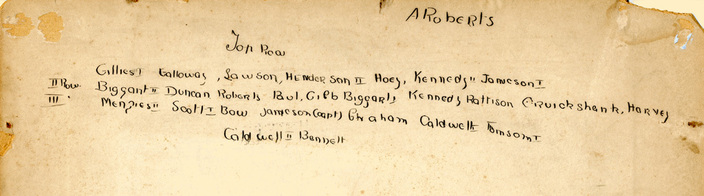 A Roberts
Top Row
Gillies I Galloway, Lawson, Henderson II Hoey, Kennedy II Jameson I
II Row Biggart II Duncan Roberts Bul, Gibb Biggart I Kennedy Pattison Cruickshank, Harvey
III. Menzies II Scott I Bow Jameson (capt) Graham Caldwell I
Caldwell II Bennett